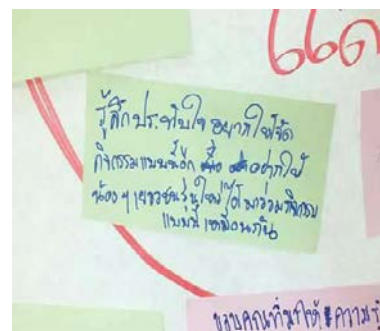 แด
รู้สึกประทับใจ อยากให้จัด
กิจกรรมแบบนี้อีก อยากให้
น้องๆ เยาวชนรุ่นใหม่ได้มาร่วมกิจกรรม
แบบนี้เหมือนกัน
ขอบคุณที่มาให้ความรู้